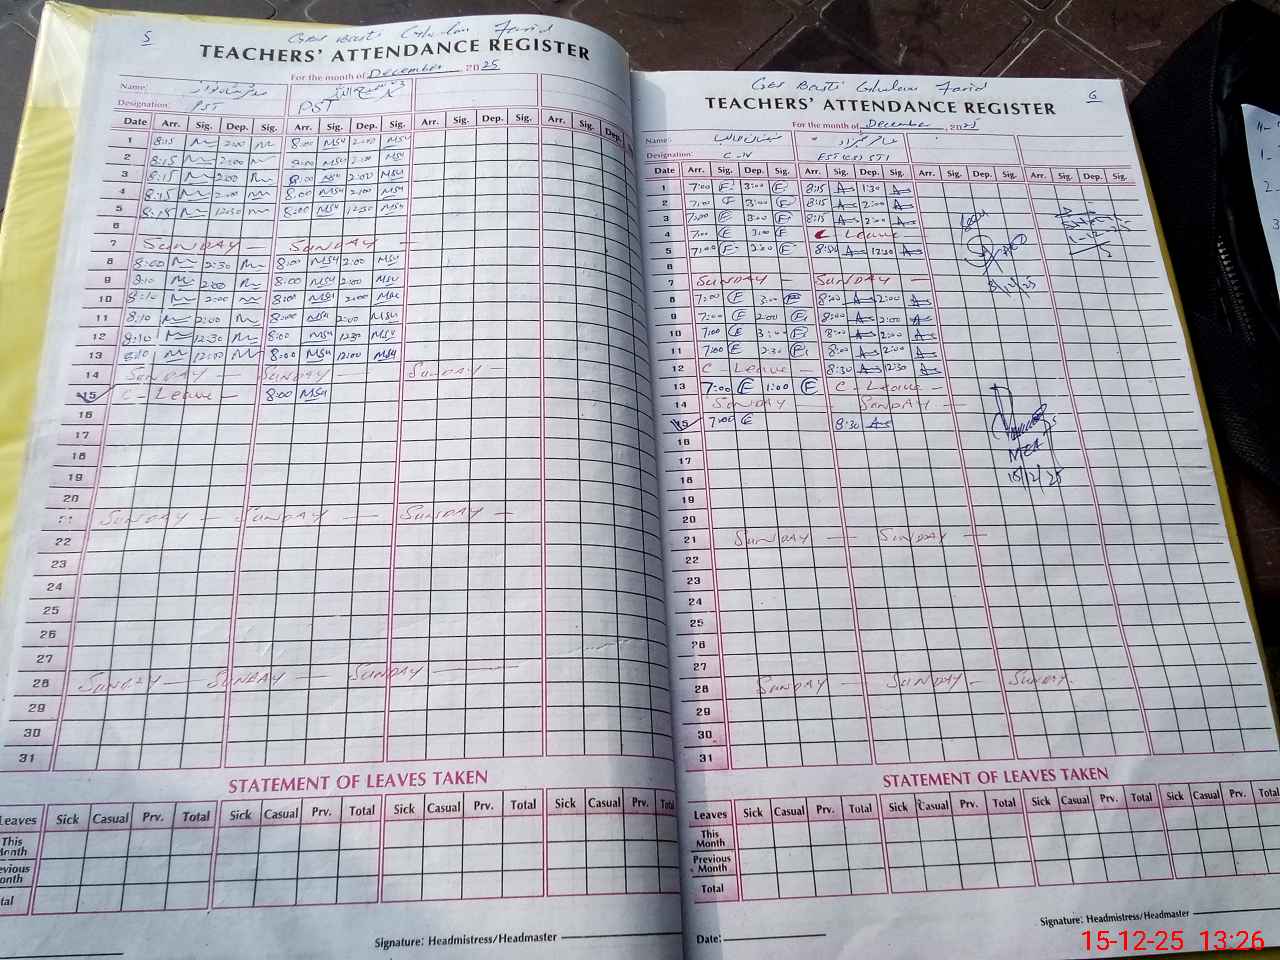 5
GBS Basti Ghulam Farid
TEACHERS' ATTENDANCE REGISTER
For the month of December, 2025
Name:
Designation: PST PST
Date Arr. Sig. Dep. Sig. Arr. Sig. Dep. Sig. Arr. Sig. Dep. Sig. Arr. Sig. Dep.
1 8:15 2:00 8:00 MSU 2:00 MSU
2 8:15 2:00 8:00 MSU 2:00 MSU
3 8:15 2:00 8:00 MSU 2:00 MSU
4 8:15 2:00 8:00 MSU 2:00 MSU
5 8:15 12:30 8:00 MSU 12:30 MSU
6
7 SUNDAY — SUNDAY —
8 8:00 2:30 8:00 MSU 2:00 MSU
9 8:10 2:00 8:00 MSU 2:00 MSU
10 8:10 2:00 8:00 MSU 2:00 MSU
11 8:10 2:00 8:00 MSU 2:00 MSU
12 8:10 12:30 8:00 MSU 12:30 MSU
13 8:10 12:00 8:00 MSU 12:00 MSU
14 SUNDAY — SUNDAY — SUNDAY —
15 C - Leave - 8:00 MSU
16
17
18
19
20
21 SUNDAY — SUNDAY — SUNDAY —
22
23
24
25
26
27
28 SUNDAY — SUNDAY — SUNDAY —
29
30
31
STATEMENT OF LEAVES TAKEN
Leaves Sick Casual Prv. Total Sick Casual Prv. Total Sick Casual Prv. Total Sick Casual Prv. Total
This Month
Previous Month
Total
Signature: Headmistress/Headmaster
6
GBS Basti Ghulam Farid
TEACHERS' ATTENDANCE REGISTER
For the month of December, 2025
Name:
Designation: C-IV
Date Arr. Sig. Dep. Sig. Arr. Sig. Dep. Sig. Arr. Sig. Dep. Sig. Arr. Sig. Dep. Sig.
1 7:00 E 3:00 E 8:15 1:30
2 7:00 E 3:00 E 8:15 2:00
3 7:00 E 3:00 E 8:15 2:00
4 7:00 E 3:00 E C Leave
5 7:00 E 2:00 E 8:30 12:30
6
7 SUNDAY — SUNDAY —
8 7:00 E 3:00 E 8:00 2:00
9 7:00 E 2:00 E 8:00 2:00
10 7:00 E 3:00 E 8:00 2:00
11 7:00 E 2:30 E 8:00 2:00
12 C - Leave - 8:30 12:30
13 7:00 E 1:00 E C - Leave -
14 SUNDAY — SUNDAY —
15 7:00 E 8:30
16
17
18
19
20
21 SUNDAY — SUNDAY —
22
23
24
25
26
27
28 SUNDAY — SUNDAY — SUNDAY
29
30
31
MEA
15/12/25
STATEMENT OF LEAVES TAKEN
Leaves Sick Casual Prv. Total Sick Casual Prv. Total Sick Casual Prv. Total Sick Casual Prv. Total
This Month
Previous Month
Total
Signature: Headmistress/Headmaster
Date:
15-12-25 13:26